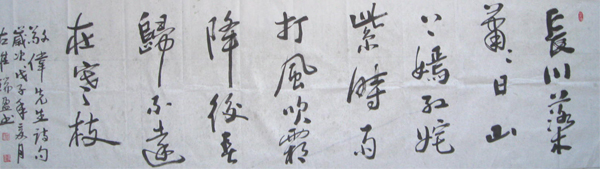 長川落木
蕭〻日山
〻嫣红姹
紫時雨
打風吹霜
降後春
歸不遠
在寒枝
敬偉先生詩句
歲次戊子年亥月